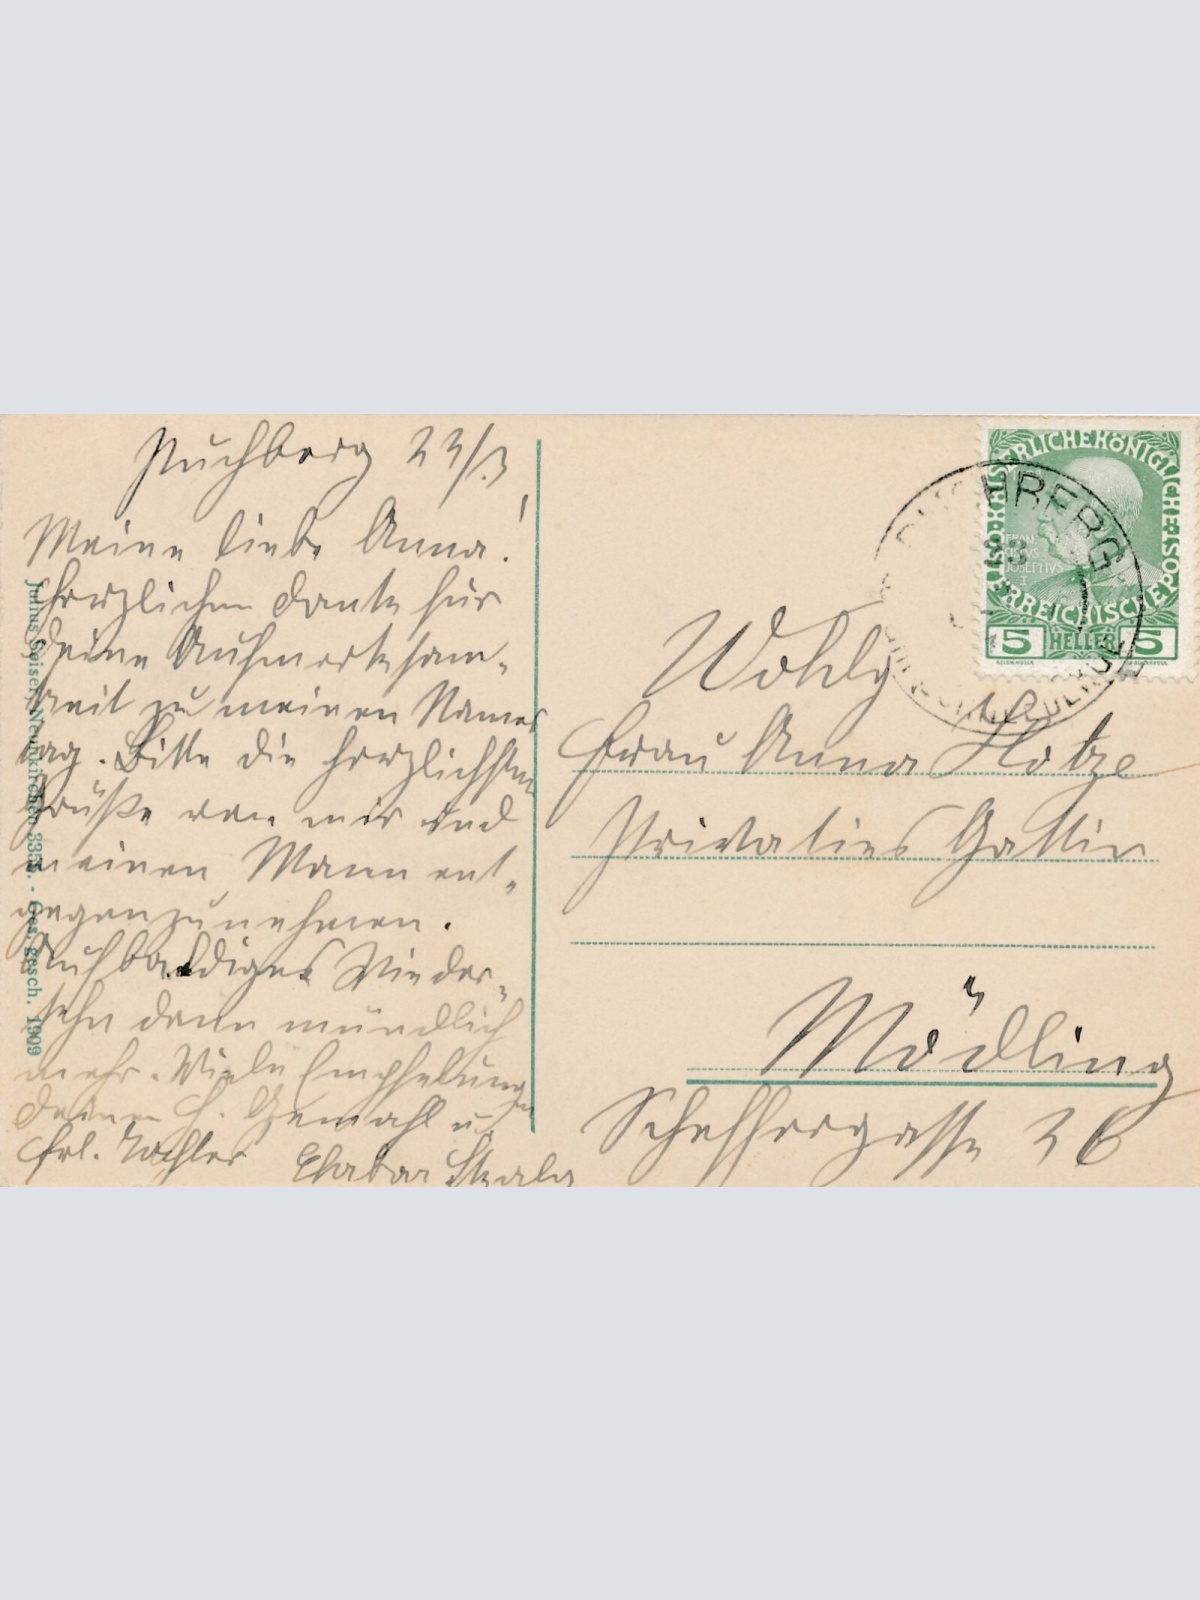 Puchberg 23/3
Meine liebe Anna!
Herzlichen Dank für
Deine Aufmerksam-
keit zu meinen Namens
tag. Bitte die herzlichsten
Grüße von mir und
meinen Mann ent-
gegenzunehmen.
Auf baldiges Wieder-
sehn dann mündlich
mehr. Viele Empfehlungen
Deinen H. Gemahl u.
Frl. Tochter
Julius Seiser, Neunkirchen - Ges. gesch. 1909
KAISERLICHEKÖNIGLICHE ÖSTERREICHISCHE POST
FRAN
CISCVS
JOSEPHVS
I
5 HELLER 5
PUCHBERG
Wohlg
Frau Anna Hotze
Privatiers Gattin
Mödling
Scheffergasse 26